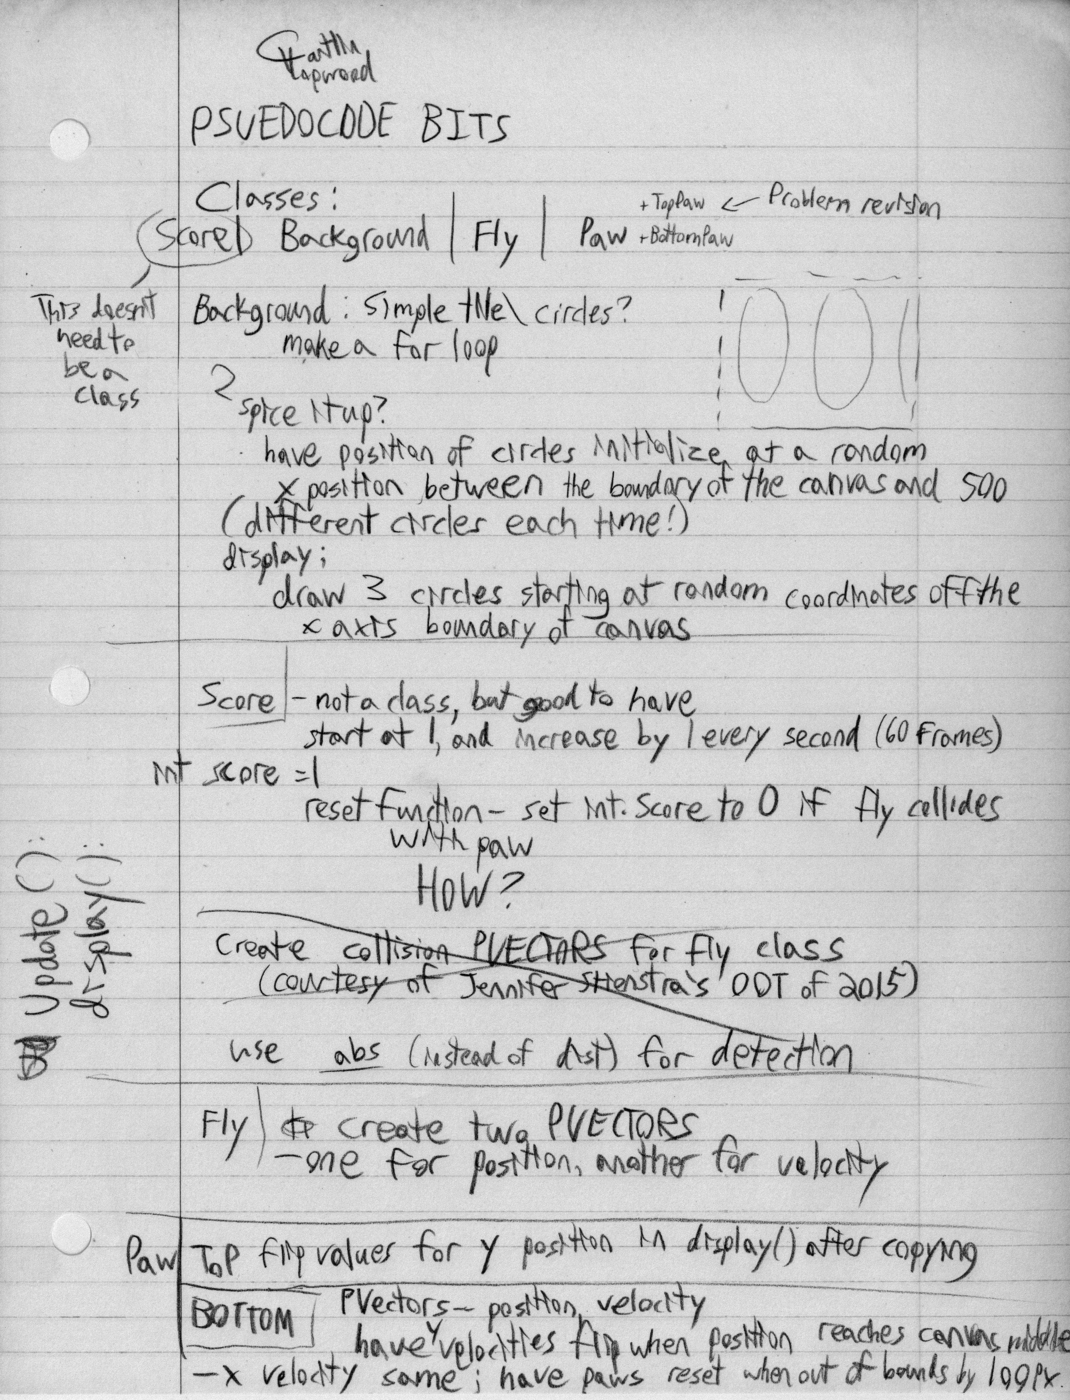 PSUEDOCODE BITS
Classes:
+TopPaw ← Problem revision
Score | Background | Fly | Paw +BottomPaw
This doesn't
need to
be a
class
Background: simple tile\ circles?
make a for loop
spice it up?
have position of circles initialize at a random
x position between the boundary of the canvas and 500
(different circles each time!)
display;
draw 3 circles starting at random coordinates off the
x axis boundary of canvas
Score - not a class, but good to have
start at 1, and increase by 1 every second (60 Frames)
int score = 1
reset function - set int. score to 0 if fly collides
with paw
HOW?
Update():
display():
Create collision PVECTORS for fly class
(courtesy of Jennifer Stienstra's ODT of 2015)
use abs (instead of dist) for detection
Fly | create two PVECTORS
- one for position, another for velocity
Paw | TOP flip values for y position in display() after copying
BOTTOM PVectors - position, velocity
have y velocities flip when position reaches canvas middle
- x velocity same; have paws reset when out of bounds by 100px.